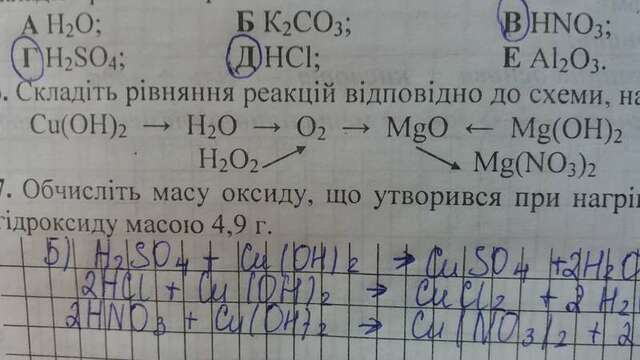 А H₂O; Б K₂CO₃; В HNO₃;
Г H₂SO₄; Д HCl; Е Al₂O₃.
Складіть рівняння реакцій відповідно до схеми, на
Cu(OH)₂ → H₂O → O₂ → MgO ← Mg(OH)₂
H₂O₂ Mg(NO₃)₂
7. Обчисліть масу оксиду, що утворився при нагрі
гідроксиду масою 4,9 г.
Б) H₂SO₄ + Cu(OH)₂ → CuSO₄ + 2H₂O
2HCl + Cu(OH)₂ → CuCl₂ + 2H₂
2HNO₃ + Cu(OH)₂ → Cu(NO₃)₂ + 2